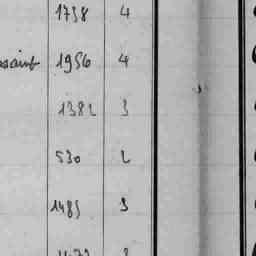 1738 4
1956 4
1382 3
530 2
1485 3